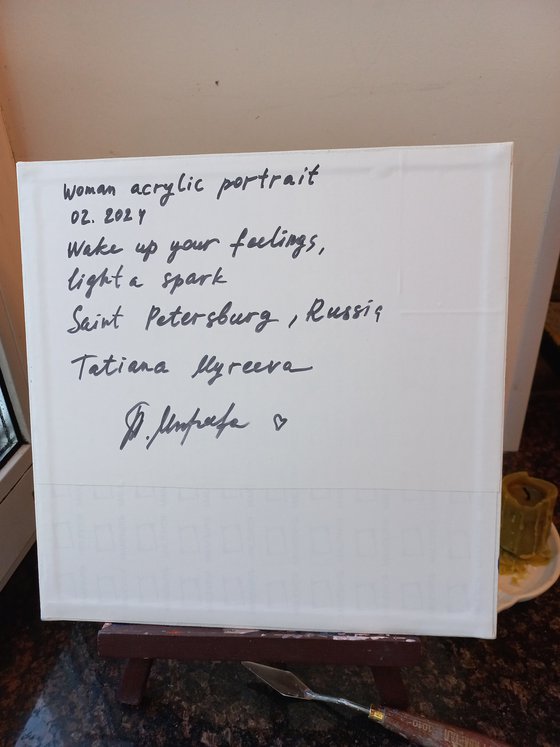 Woman acrylic portrait
02. 2024
Wake up your feelings,
light a spark
Saint Petersburg, Russia
Tatiana Myreeva